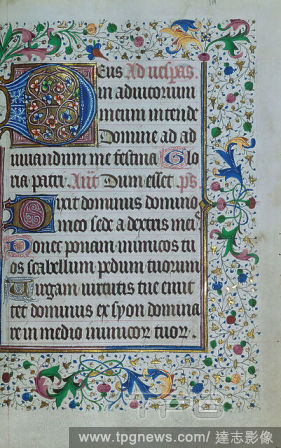 Deus Ad uesp̄as
in adiutorium
meum intende
Domine ad ad
iuuandum me festina Glo
ria patri. Ant̄ Dum esset p̄s
Dixit dominus domino
meo sede a dextris meis
Donec ponam inimicos tu
os scabellum pedum tuorum
Uirgam uirtutis tue emit
tet dominus ex syon domina
re in medio inimicoꝝ tuoꝝ.
www.tpgnews.com / 達志影像